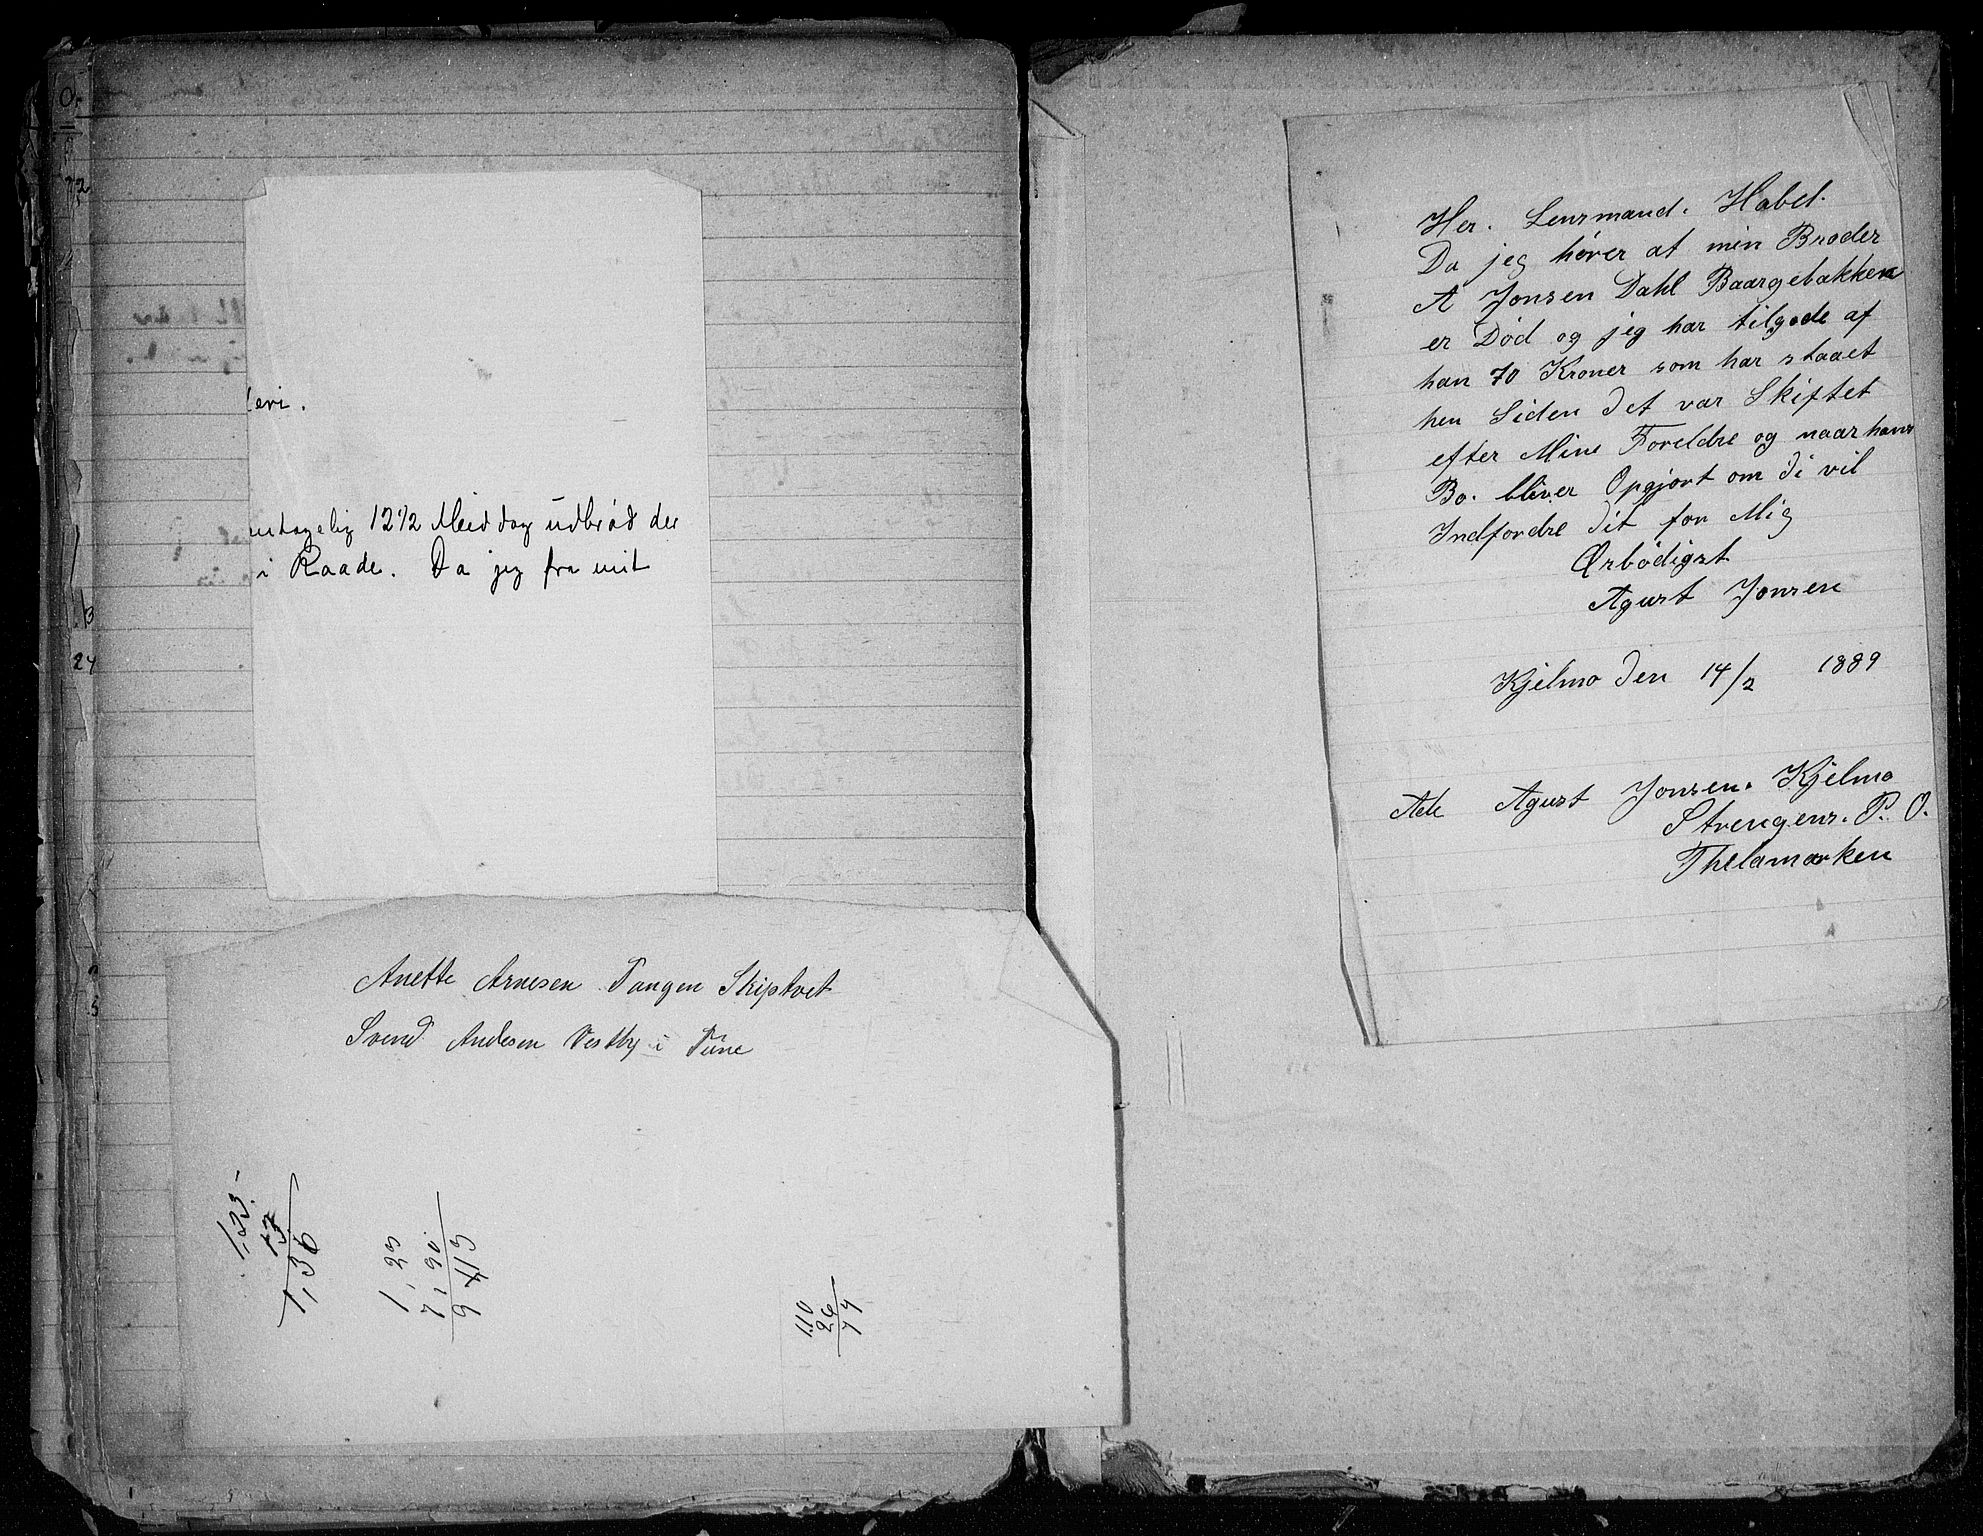 eri.
antagelig 12 1/2 Middag udbrød der
i Raade. Da jeg fra mit
Anette Arnesen Tangen Skiptvet
Svend Andesen Vestby i Tune
1,23
13
1,36
1,23
7,90
9 413
1.10
26
74
Her. Lensmand. Habel.
Da jeg hører at min Broder
A Jonsen Dahl Baargebakken
er Død og jeg har tilgode af
han 70 Kroner som har staaet
hen Siden det var Skiftet
efter Mine Foreldre og naar hans
Bo. bliver Opgjort om di vil
Indfordre dit for Mig
Ørbødigst
Agust Jonsen
Kjelmo den 14/2 1889
Ade Agust Jonsen. Kjelmo
Strengens. P. O.
Thelamarken